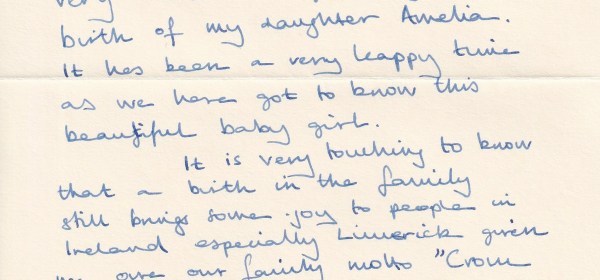 very
birth of my daughter Amelia.
It has been a very happy time
as we have got to know this
beautiful baby girl.
It is very touching to know
that a birth in the family
still brings some joy to people in
Ireland especially Limerick given
we owe our family motto "Crom